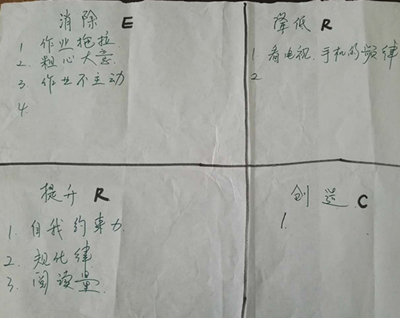 消除 E
1 作业拖拉
2. 粗心大意
3. 作业不主动
4.
降低 R
1 看电视、手机的频律
2
提升 R
1. 自我约束力
2. 规化律
3. 阅读量
创造 C
1.